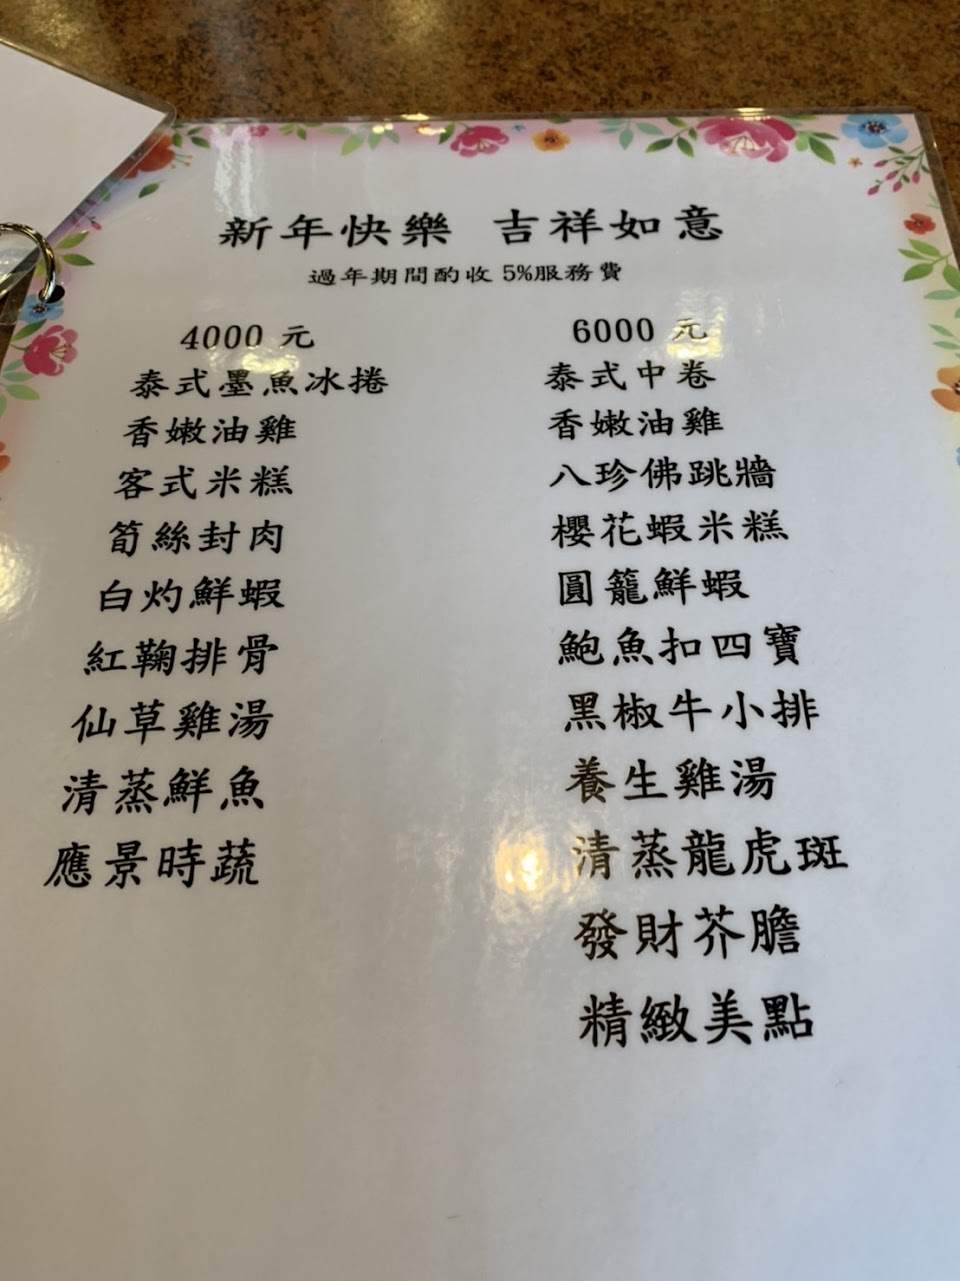 新年快樂 吉祥如意
過年期間酌收 5%服務費
4000 元
泰式墨魚冰捲
香嫩油雞
客式米糕
筍絲封肉
白灼鮮蝦
紅鞠排骨
仙草雞湯
清蒸鮮魚
應景時蔬
6000 元
泰式中卷
香嫩油雞
八珍佛跳牆
櫻花蝦米糕
圓籠鮮蝦
鮑魚扣四寶
黑椒牛小排
養生雞湯
清蒸龍虎斑
發財芥膽
精緻美點